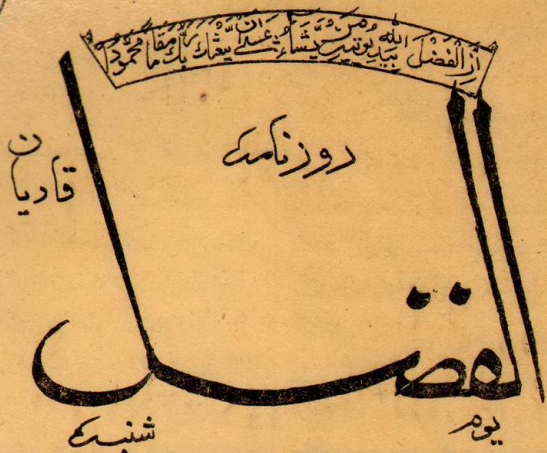 اِنَّ الْفَضْلَ بِيَدِ اللّٰهِ يُوْتِيْهِ مَنْ يَّشَآءُ عَسٰى اَنْ يَّبْعَثَكَ رَبُّكَ مَقَامًا مَّحْمُوْدًا
روزنامہ
قادیان
الفضل
یوم شنبہ